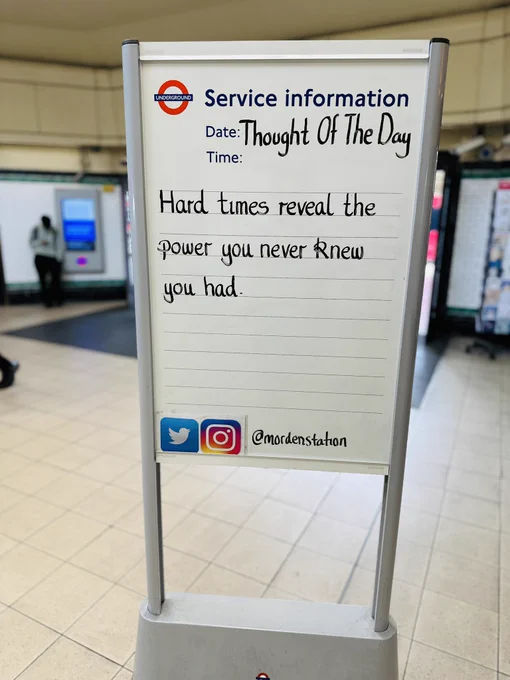 UNDERGROUND
Service information
Date: Thought Of The Day
Time:
Hard times reveal the
power you never knew
you had.
@mordenstation